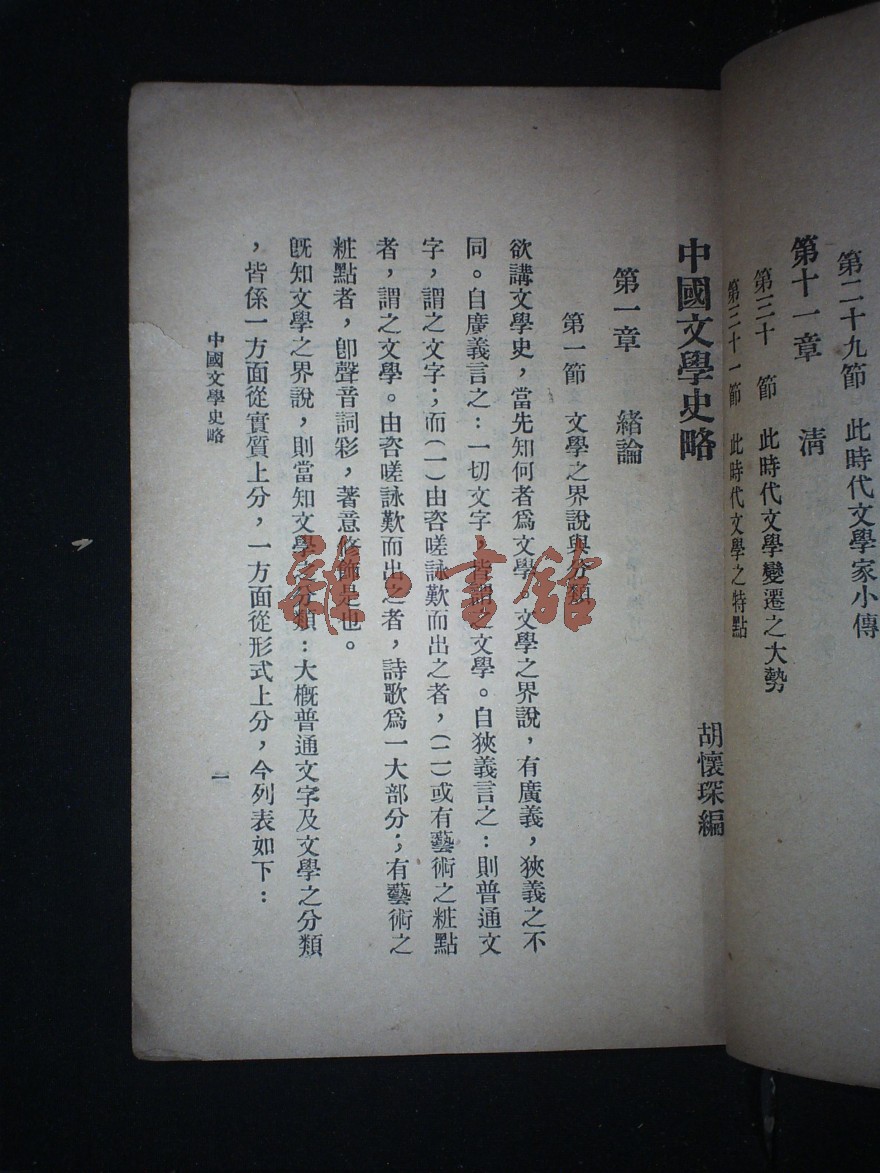 第二十九節　此時代文學家小傳
第十一章　清
第三十　節　此時代文學變遷之大勢
第三十一節　此時代文學之特點
中國文學史略
胡懷琛編
第一章　緒論
第一節　文學之界說與分類
欲講文學史，當先知何者爲文學，文學之界說，有廣義，狹義之不
同。自廣義言之：一切文字，皆謂之文學。自狹義言之：則普通文
字，謂之文字；而（一）由咨嗟詠歎而出之者，（二）或有藝術之粧點
者，謂之文學。由咨嗟詠歎而出之者，詩歌爲一大部分；有藝術之
粧點者，卽聲音詞彩，著意修飾是也。
旣知文學之界說，則當知文學之分類：大槪普通文字及文學之分類
，皆係一方面從實質上分，一方面從形式上分，今列表如下：
中國文學史略
一
雜·書館